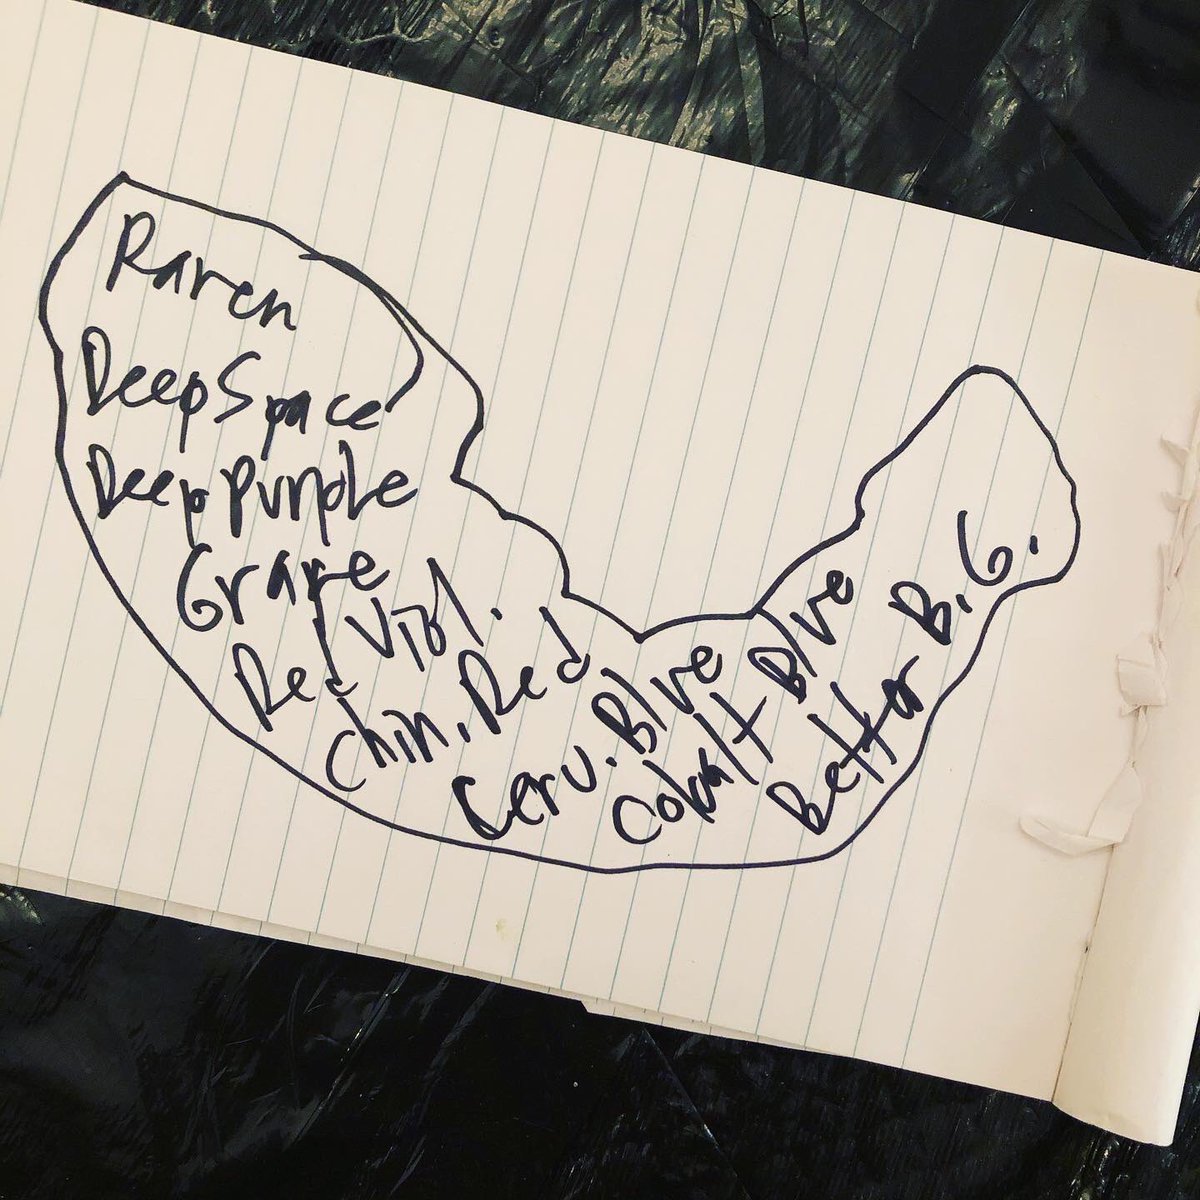 Raven
Deep Space
Deep Purple
Grape
Red Viol.
Chin. Red
Ceru. Blue
Cobalt Blue
Better B.G.